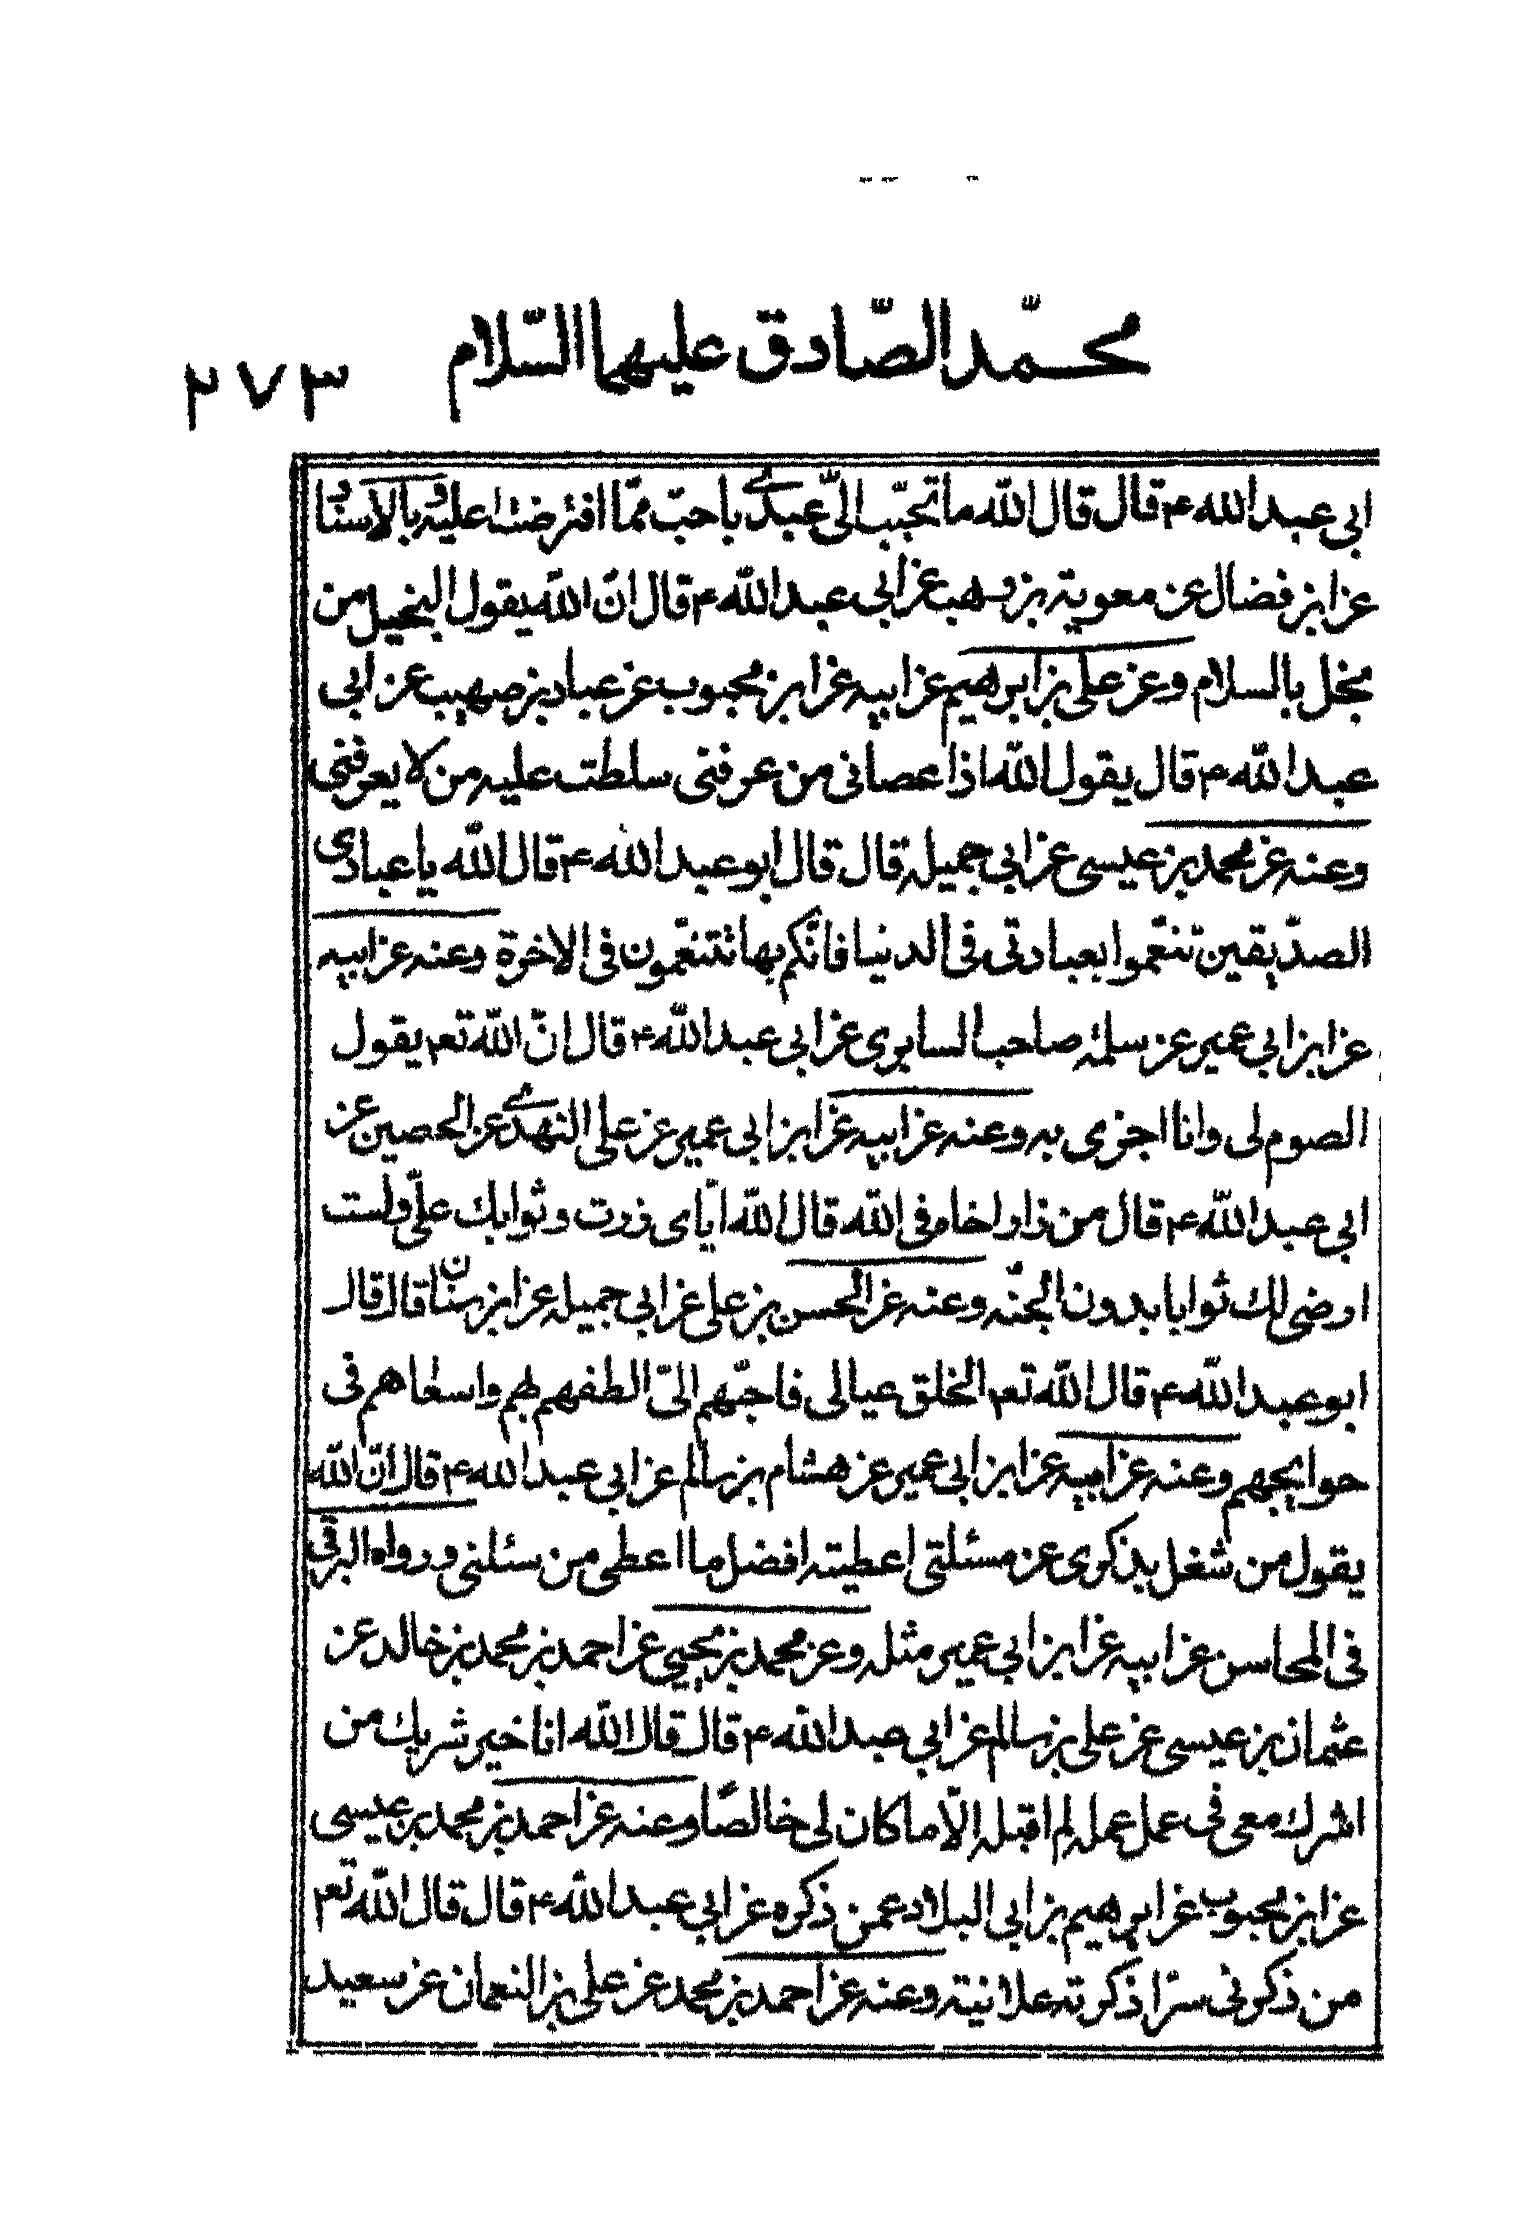 محمّد الصّادق عليهما السّلام
٢٧٣
ابى عبد الله ع قال قال الله ما تحبّب الىّ عبدى باحبّ ممّا افترضت عليه وبالاسناد
عن ابن فضال عن معوية بن وهب عن ابى عبد الله ع قال انّ الله يقول البخيل من
بخل بالسلام وعن على بن ابرهيم عن ابيه عن ابن محبوب عن عباد بن صهيب عن ابى
عبد الله ع قال يقول الله اذا عصانى من عرفنى سلطت عليه من لا يعرفنى
وعنه عن محمد بن عيسى عن ابى جميله قال قال ابو عبد الله ع قال الله يا عبادى
الصدّيقين تنعّموا بعبادتى فى الدنيا فانّكم بها تتنعّمون فى الاخرة وعنه عن ابيه
عن ابن ابى عمير عن سلمة صاحب السابرى عن ابى عبد الله ع قال انّ الله تعم يقول
الصوم لى وانا اجزى به وعنه عن ابيه عن ابن ابى عمير عن على النهدى عن الحصين عن
ابى عبد الله ع قال من زار اخاه فى الله قال الله ايّاى زرت وثوابك علىّ ولست
ارضى لك ثوابا بدون الجنّه وعنه عن الحسن بن على عن ابى جميله عن ابن سنان قال قال
ابو عبد الله ع قال الله تعم الخلق عيالى فاحبّهم الىّ الطفهم بهم واسعاهم فى
حوايجهم وعنه عن ابيه عن ابن ابى عمير عن هشام بن سالم عن ابى عبد الله ع قال انّ الله
يقول من شغل بذكرى عن مسئلتى اعطيته افضل ما اعطى من سئلنى ورواه البرقى
فى المحاسن عن ابيه عن ابن ابى عمير مثله وعن محمد بن يحيى عن احمد بن محمد بن خالد عن
عثمان بن عيسى عن على بن سالم عن ابى عبد الله ع قال قال الله انا خير شريك من
اشرك معى فى عمل عمله لم اقبله الّا ما كان لى خالصًا وعنه عن احمد بن محمد بن عيسى
عن ابن محبوب عن ابرهيم بن ابى البلاد عمن ذكره عن ابى عبد الله ع قال قال الله تعم
من ذكرنى سرّا ذكرته علانيته وعنه عن احمد بن محمد عن على بن النعمان عن سعيد